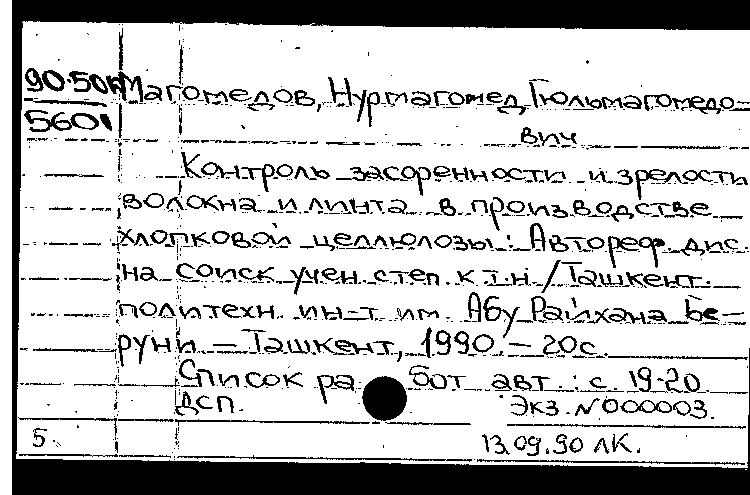 90-50к Магомедов, Нурмагомед Гюльмагомедо-
5601
вич
Контроль засоренности и зрелости
волокна и линта в производстве
хлопковой целлюлозы : Автореф. дис.
на соиск учен. степ. к.т.н. / Ташкент.
политехн. ин-т им. Абу Райхана Бе-
руни — Ташкент, 1990. — 20с.
Список работ авт. : с. 19-20.
ДСП. Экз. N000003.
5. 13.09.90 ЛК.